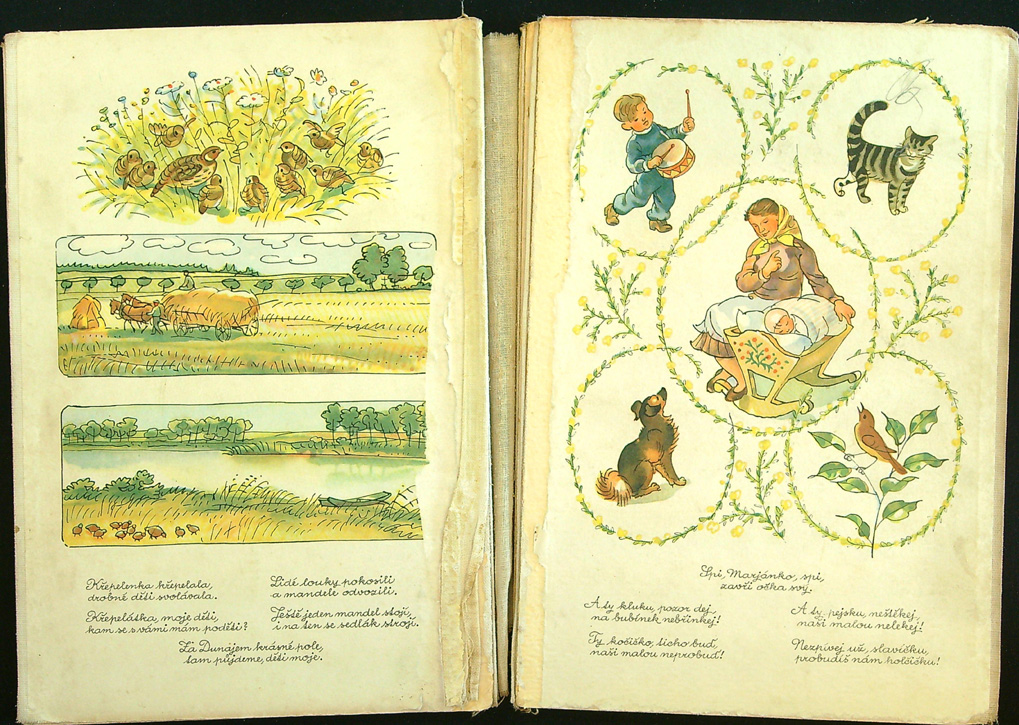 Křepelenka křepelala,
drobné děti svolávala.
Křepelátka, moje děti,
kam se s vámi mám poděti?
Lidé louky pokosili
a mandele odvozili.
Ještě jeden mandel stojí,
i na ten se sedlák strojí.
Za Dunajem krásné pole,
tam půjdeme, děti moje.
Spi, Marjánko, spi,
zavři očka svý.
A ty kluku, pozor dej,
na bubínek nebřinkej!
Ty kočičko, ticho buď,
naši malou neprobuď!
A ty, pejsku, neštěkej,
naši malou nelekej!
Nezpívej už, slavíčku,
probudíš nám holčičku!